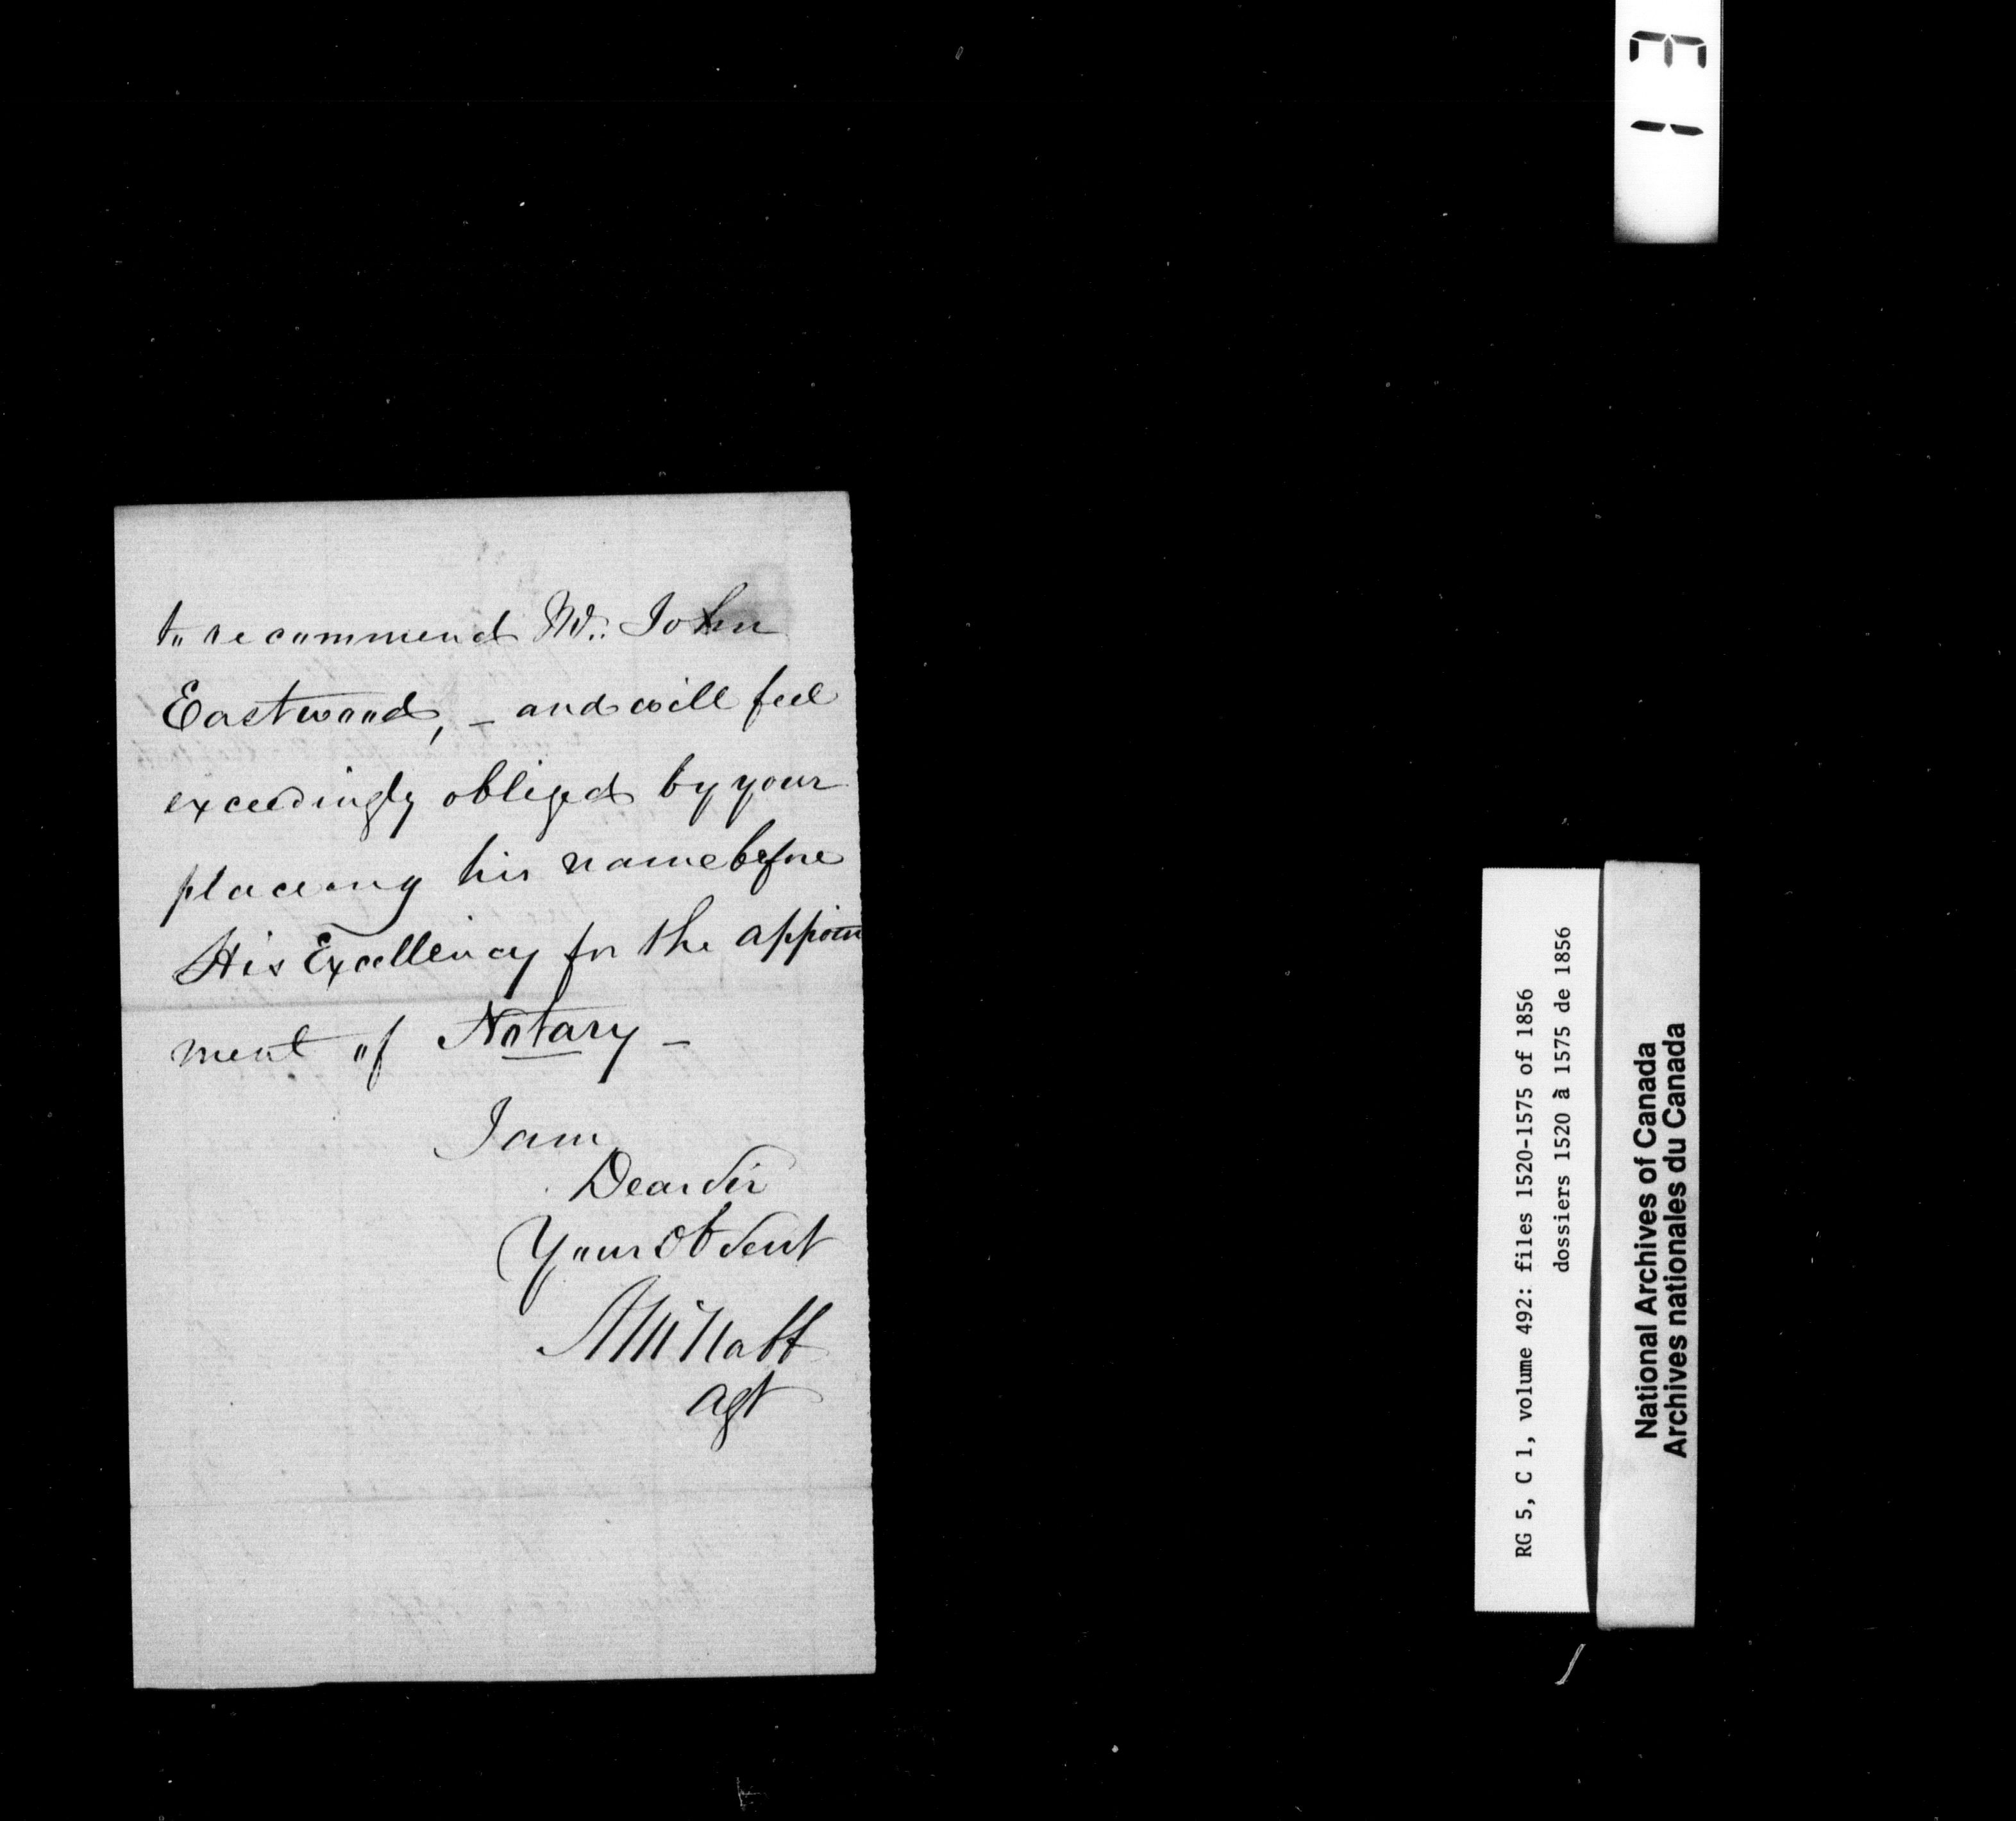 to recommend Mr. John
Eastwood, - and will feel
exceedingly obliged by your
placeing his name before
His Excellency for the appoin
ment of Notary -
I am
Dear Sir
Your Ob Sevt
agt
13
RG 5, C 1, volume 492: files 1520-1575 of 1856
dossiers 1520 à 1575 de 1856
National Archives of Canada
Archives nationales du Canada